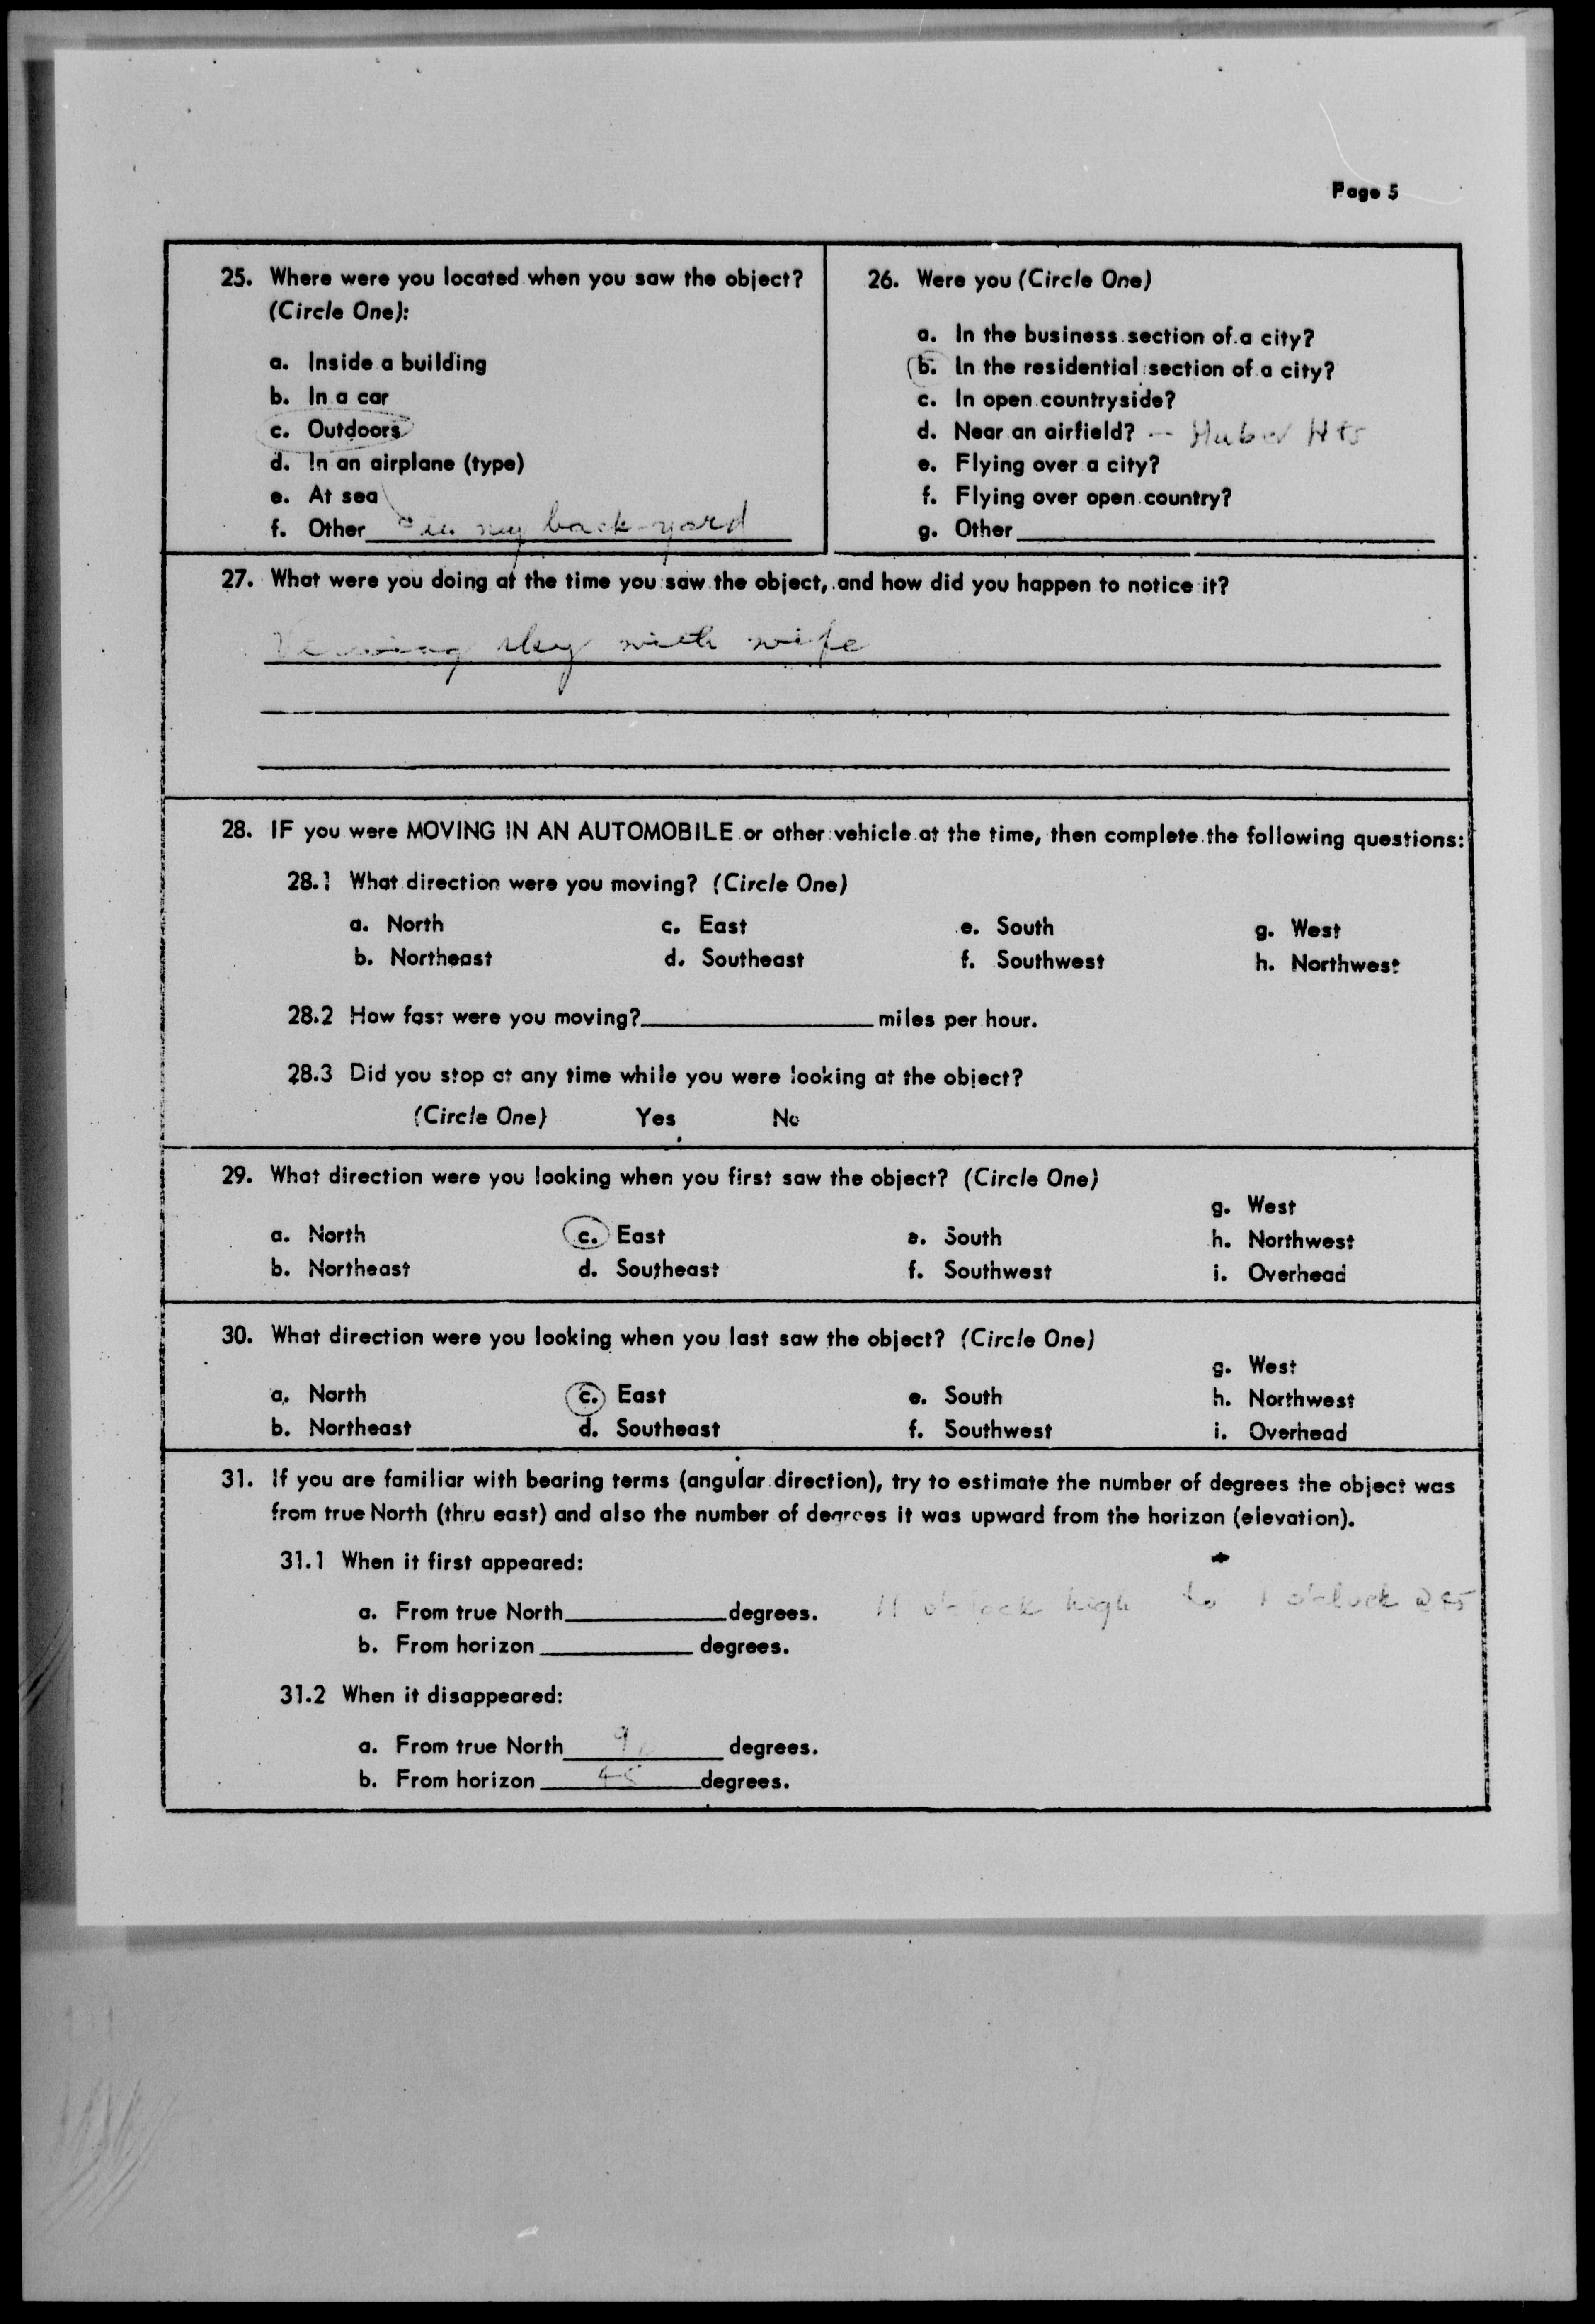 Page 5
25. Where were you located when you saw the object?
(Circle One):
a. Inside a building
b. In a car
c. Outdoors
d. In an airplane (type)
e. At sea
f. Other in my back yard
26. Were you (Circle One)
a. In the business section of a city?
b. In the residential section of a city?
c. In open countryside?
d. Near an airfield? -- Huber Hts
e. Flying over a city?
f. Flying over open country?
g. Other
27. What were you doing at the time you saw the object, and how did you happen to notice it?
Viewing sky with wife
28. IF you were MOVING IN AN AUTOMOBILE or other vehicle at the time, then complete the following questions:
28.1 What direction were you moving? (Circle One)
a. North c. East e. South g. West
b. Northeast d. Southeast f. Southwest h. Northwest
28.2 How fast were you moving? miles per hour.
28.3 Did you stop at any time while you were looking at the object?
(Circle One) Yes No
29. What direction were you looking when you first saw the object? (Circle One)
g. West
a. North c. East e. South h. Northwest
b. Northeast d. Southeast f. Southwest i. Overhead
30. What direction were you looking when you last saw the object? (Circle One)
g. West
a. North c. East e. South h. Northwest
b. Northeast d. Southeast f. Southwest i. Overhead
31. If you are familiar with bearing terms (angular direction), try to estimate the number of degrees the object was
from true North (thru east) and also the number of degrees it was upward from the horizon (elevation).
31.1 When it first appeared:
a. From true North degrees. 11 o'clock high to 1 o'clock
b. From horizon degrees.
31.2 When it disappeared:
a. From true North 90 degrees.
b. From horizon 45 degrees.